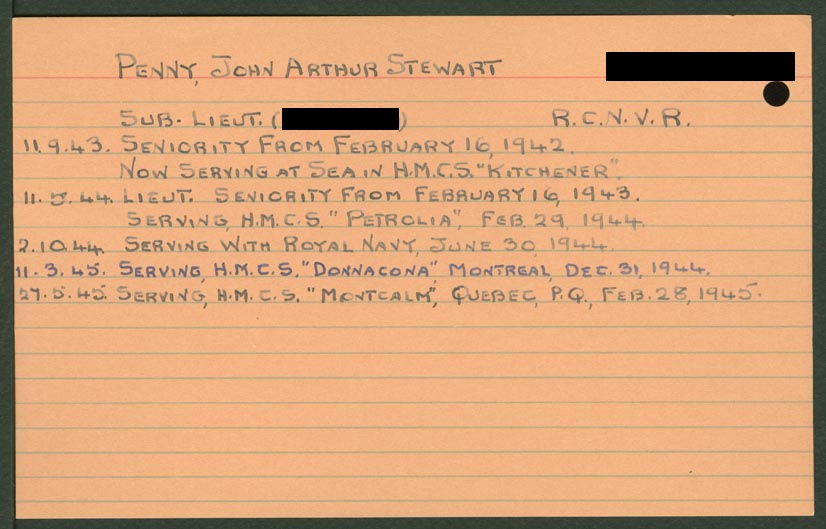 PENNY, JOHN ARTHUR STEWART
SUB-LIEUT. ( ) R.C.N.V.R.
11.9.43. SENIORITY FROM FEBRUARY 16, 1942.
NOW SERVING AT SEA IN H.M.C.S. "KITCHENER".
11.5.44. LIEUT. SENIORITY FROM FEBRUARY 16, 1943.
SERVING, H.M.C.S. "PETROLIA", FEB. 29, 1944.
2.10.44. SERVING WITH ROYAL NAVY, JUNE 30, 1944.
11.3.45. SERVING, H.M.C.S. "DONNACONA", MONTREAL, DEC. 31, 1944.
27.5.45. SERVING, H.M.C.S. "MONTCALM", QUEBEC, P.Q., FEB. 28, 1945.